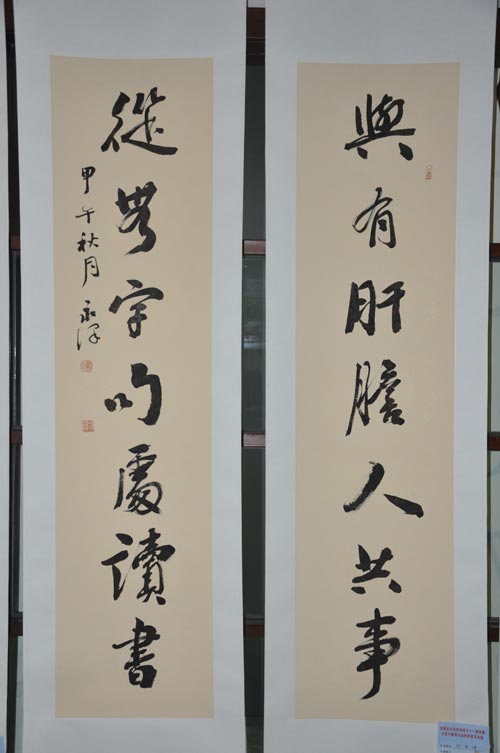 與有肝膽人共事
從無字句處讀書
甲午秋月 永澤